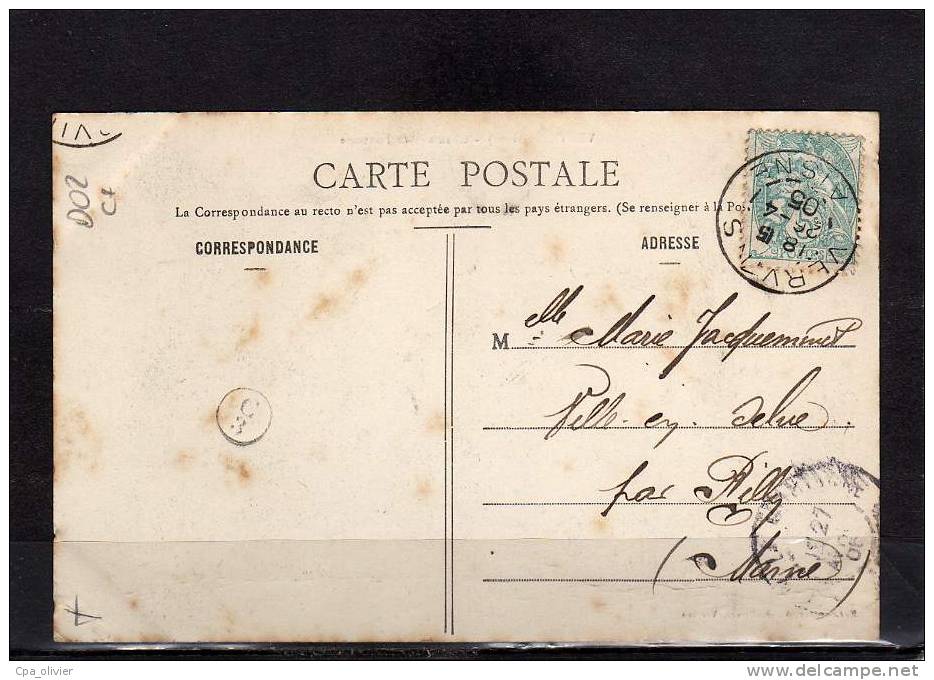 D02
C+
CARTE POSTALE
La Correspondance au recto n'est pas acceptée par tous les pays étrangers. (Se renseigner à la Pos
CORRESPONDANCE
ADRESSE
VERVINS
AISNE
18
05
M elle Marie Jacqueminet
Ville-en-Selve
par Rilly
(Marne
C
3
27
06
Cpa_olivier
www.delcampe.net